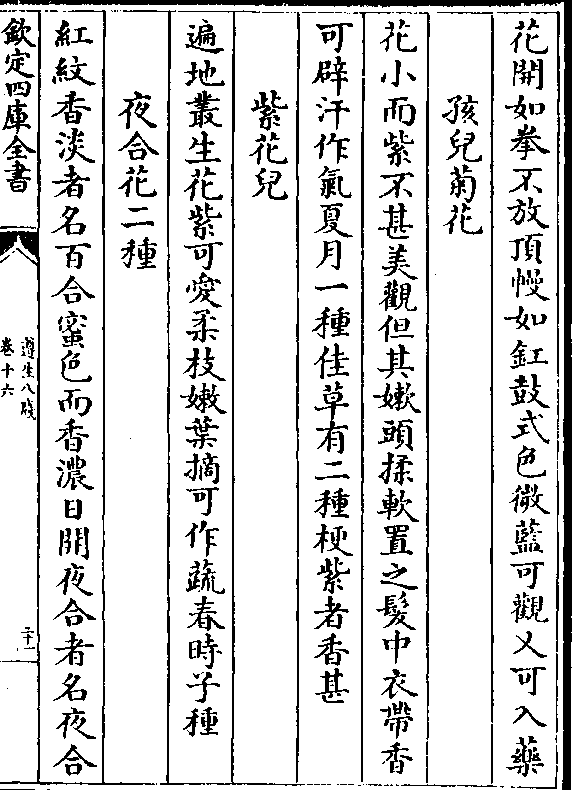 花開如拳不放頂幔如缸鼓式色微藍可觀又可入藥
孩兒菊花
花小而紫不甚美觀但其嫩頭揉軟置之髪中衣帶香
可辟汗作氣夏月一種佳草有二種梗紫者香甚
紫花兒
遍地叢生花紫可愛柔枝嫩葉摘可作蔬春時子種
夜合花二種
紅紋香淡者名百合蜜色而香濃日開夜合者名夜合
欽定四庫全書
遵生八牋
卷十六
二十一